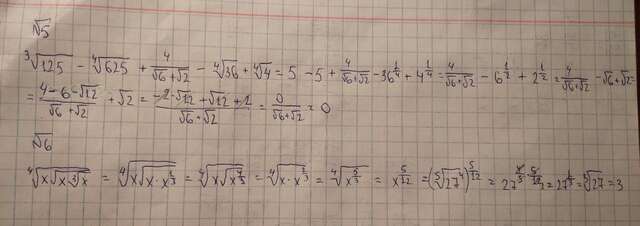 №5
∛125 − ∜625 + 4/(√6+√2) − ∜36 + ∜4 = 5 − 5 + 4/(√6+√2) − 36^(1/4) + 4^(1/4) = 4/(√6+√2) − 6^(1/2) + 2^(1/2) = 4/(√6+√2) − √6 + √2 =
= (4 − 6 − √12)/(√6+√2) + √2 = (−2 − √12 + √12 + 2)/(√6+√2) = 0/(√6+√2) = 0
№6
∜(x√(x·∛x)) = ∜(x√(x·x^(1/3))) = ∜(x√(x^(4/3))) = ∜(x·x^(2/3)) = ∜(x^(5/3)) = x^(5/12) = (⁵√27⁴)^(5/12) = 27^(4/5·5/12) = 27^(1/3) = ∛27 = 3